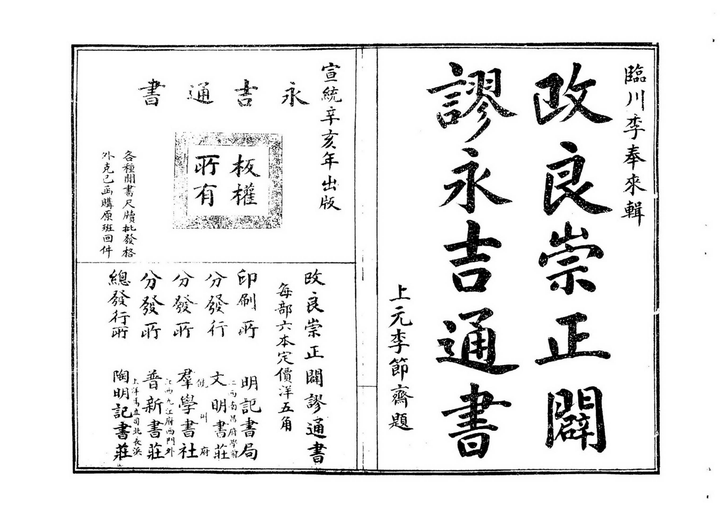 臨川李奉來輯
改良崇正闢
謬永吉通書
上元李節齋題
宣統辛亥年出版
永吉通書
板權
所有
各種閒書尺牘批發格
外克己函購原班回件
改良崇正闢謬通書
每部六本定價洋五角
印刷所 明記書局
分發行 文明書莊
饒州府
分發所 羣學書社
江西九江府西門外
分發所 普新書莊
總發行所 陶明記書莊